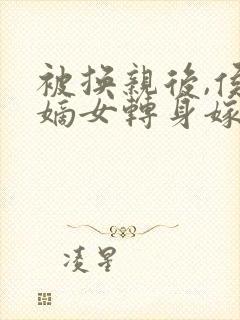 被換親後,侯
嫡女轉身嫁
凌星